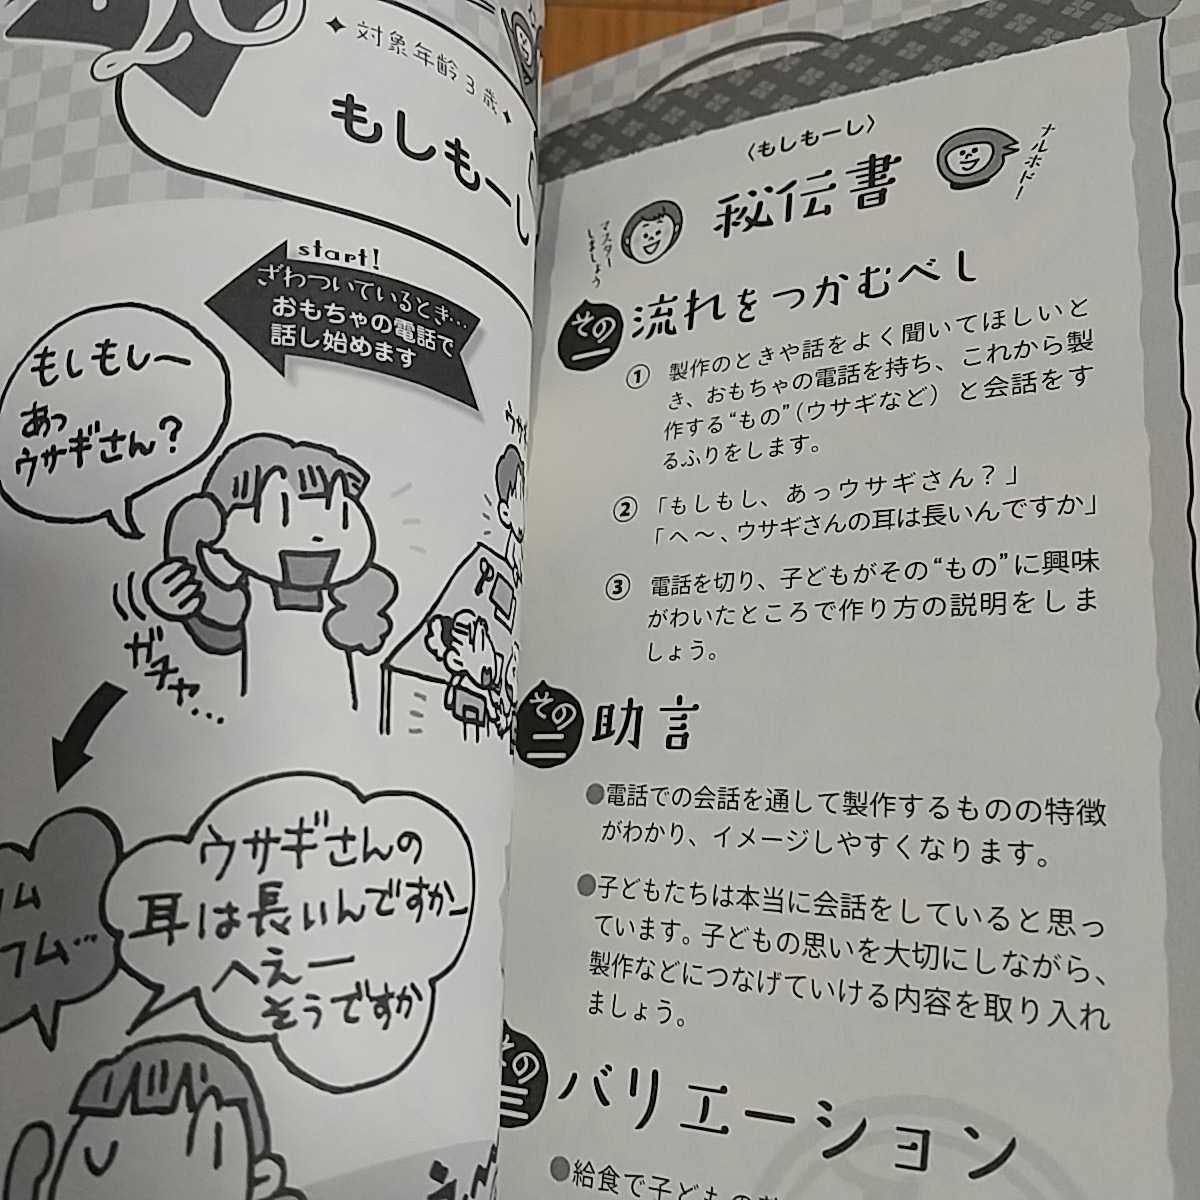 対象年齢3歳
もしもーし
start!
ざわついているとき…
おもちゃの電話で
話し始めます
もしもしー
あっ
ウサギさん?
ガチャ…
ウサギさんの
耳は長いんですかー
へえー
そうですか
〈もしもーし〉
秘伝書
マスター
しましょう
ナルホドー
その一
流れをつかむべし
① 製作のときや話をよく聞いてほしいと
き、おもちゃの電話を持ち、これから製
作する“もの”（ウサギなど）と会話をす
るふりをします。
② 「もしもし、あっウサギさん?」
「へ〜、ウサギさんの耳は長いんですか」
③ 電話を切り、子どもがその“もの”に興味
がわいたところで作り方の説明をしま
しょう。
その二
助言
●電話での会話を通して製作するものの特徴
がわかり、イメージしやすくなります。
●子どもたちは本当に会話をしていると思っ
ています。子どもの思いを大切にしながら、
製作などにつなげていける内容を取り入れ
ましょう。
その三
バリエーション
●給食で子どもの